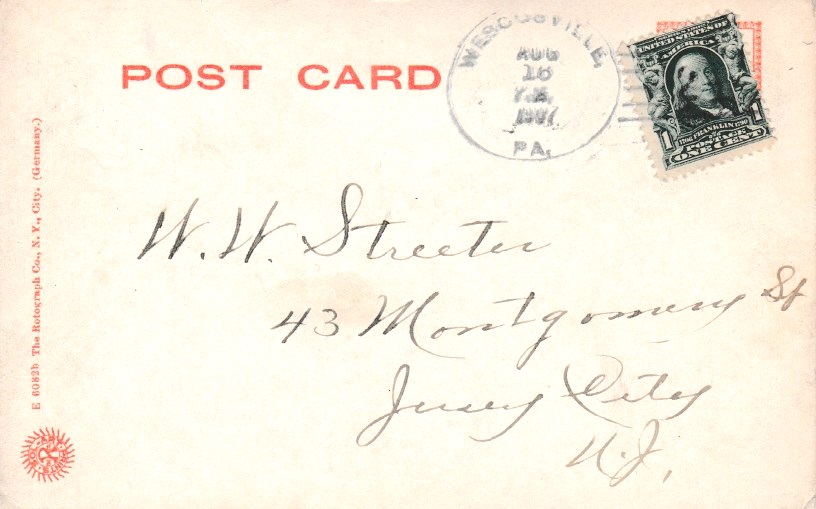 POST CARD
WESCOSVILLE,
AUG
16
PA.
UNITED STATES OF
AMERICA
1 1
1706 FRANKLIN 1790
POSTAGE
ONE CENT
W. W. Streeter
43 Montgomery St
Jersey City
N.J.
E 6082b The Rotograph Co., N. Y., City. (Germany.)
R